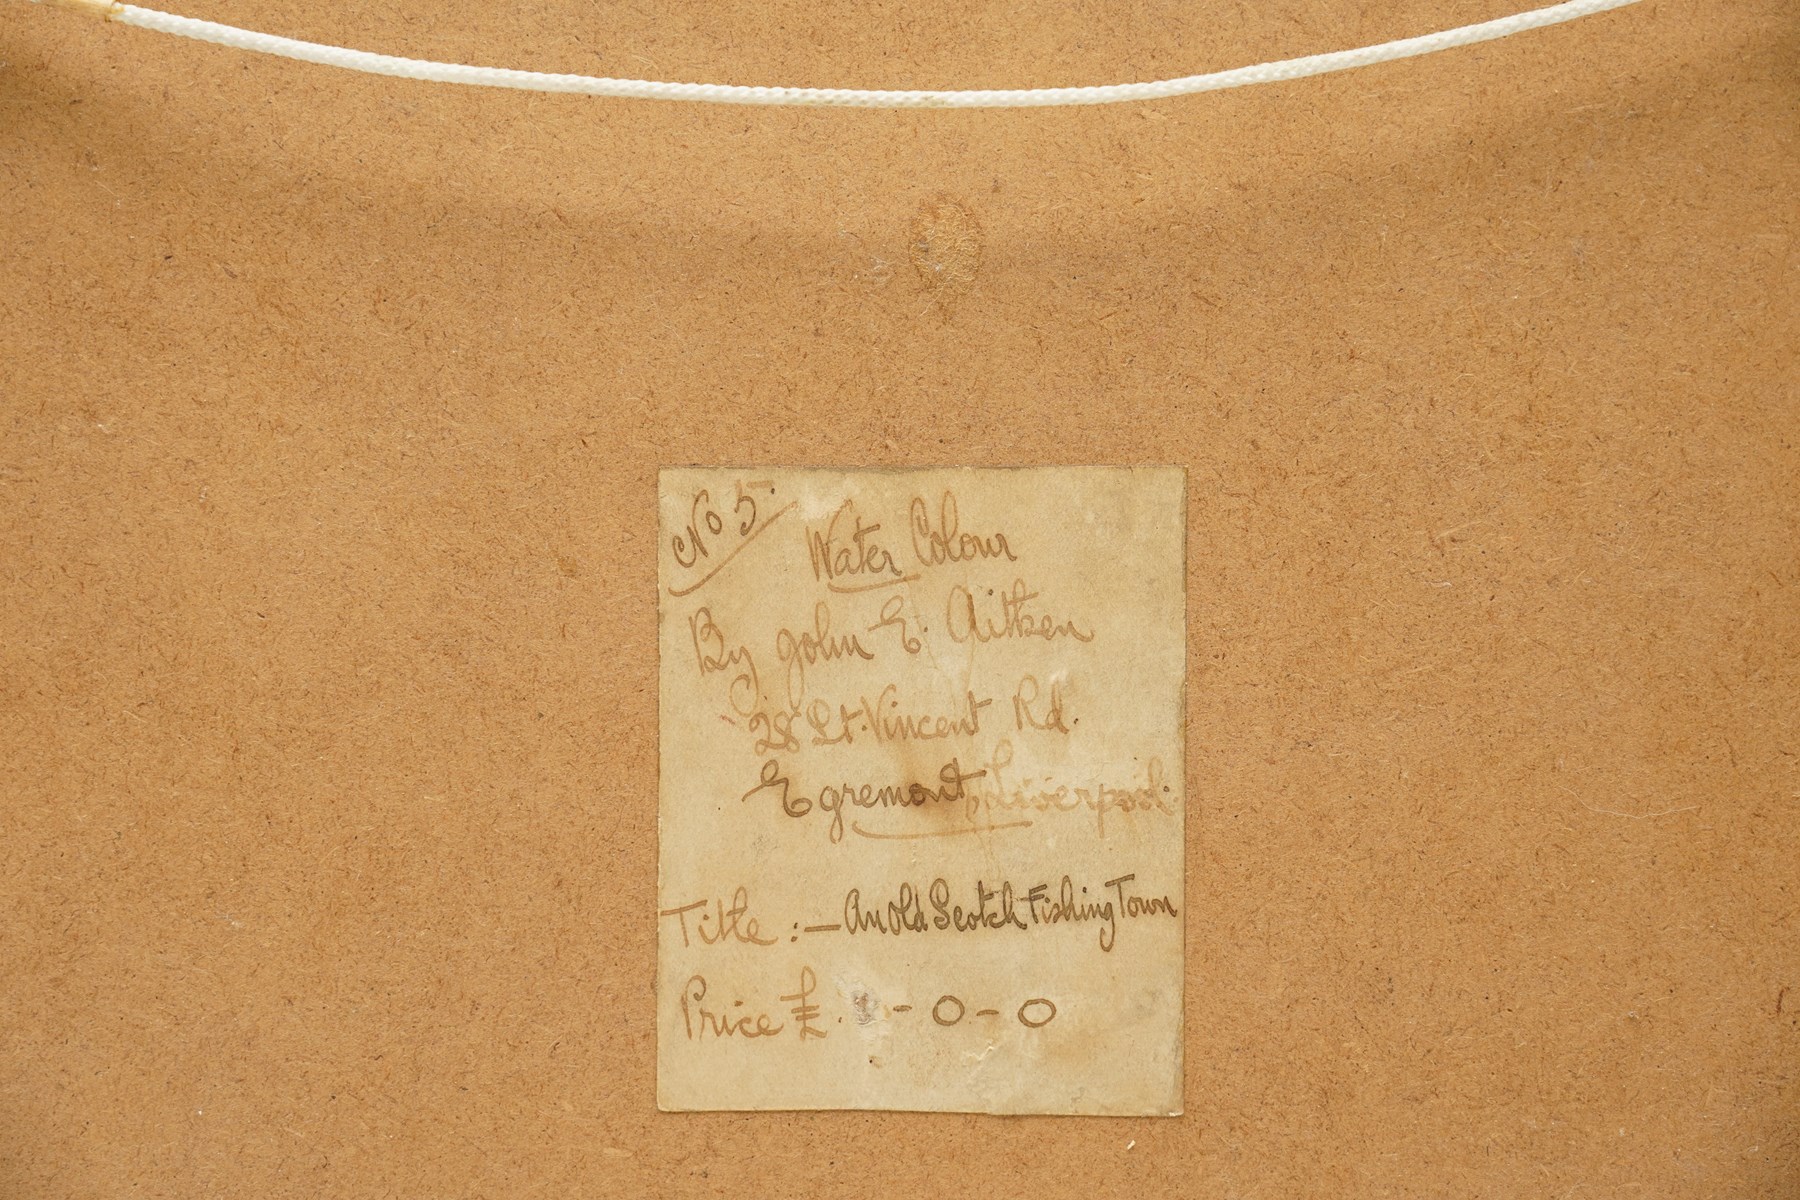 No 5.
Water Colour
By John E. Aitken
28 St. Vincent Rd.
Egremont, Liverpool.
Title :— An Old Scotch Fishing Town
Price £ - 0 - 0